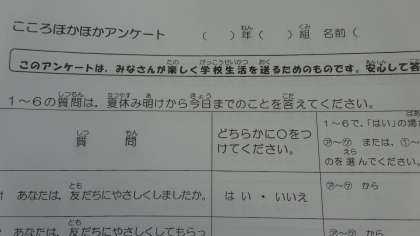 こころほかほかアンケート （　）年（　）組 名前（
このアンケートは、みなさんが楽しく学校生活を送るためのものです。安心して答
１～６の質問は、夏休み明けから今日までのことを答えてください。
質問
どちらかに○をつけてください。
１～６で、「はい」の場
㋐～㋘ または、①～
のを選んでください。
あなたは、友だちにやさしくしましたか。
はい ・ いいえ
㋐～㋘ から
あなたは、友だちにやさしくしてもらっ